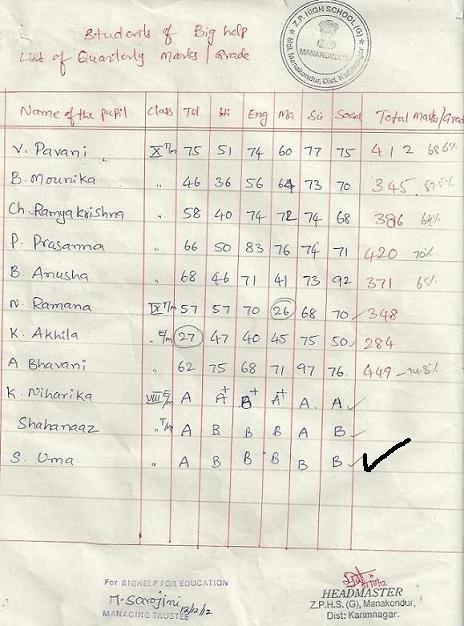 Students of Big help
List of Quarterly Marks / Grade
Z.P. HIGH SCHOOL (G)
MANAKONDUR
Mdl. Manakondur, Dist. Karimnagar.
Name of the pupil Class Tel Hi Eng Ma Sci Social Total Marks/Grade
V. Pavani X T/m 75 51 74 60 77 75 412 68.6%
B. Mounika " 46 36 56 64 73 70 345 57.5%
Ch. Ramya krishna " 58 40 74 72 74 68 386 64%
P. Prasanna " 66 50 83 76 74 71 420 70%
B. Anusha " 68 46 71 41 73 92 371 65%
N. Ramana IX T/m 57 57 70 26 68 70 348
K. Akhila " E/m 27 47 40 45 75 50 284
A Bhavani " 62 75 68 71 97 76 449 74.8%
K. Niharika VIII E/m A A+ B+ A+ A A
Shahanaaz " T/m A B B B A B
S. Uma " A B B B B B
For BIGHELP FOR EDUCATION
M. Sarojini 12/2/12
MANAGING TRUSTEE
HEADMASTER
Z.P.H.S. (G), Manakondur,
Dist: Karimnagar.